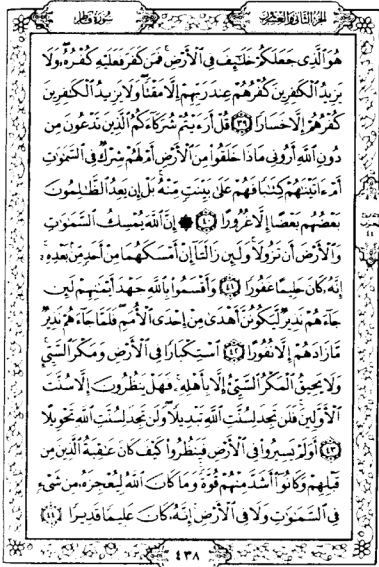 الجزء الثاني والعشرون
سورة فاطر
هُوَ ٱلَّذِى جَعَلَكُمْ خَلَٰٓئِفَ فِى ٱلْأَرْضِ فَمَن كَفَرَ فَعَلَيْهِ كُفْرُهُۥ وَلَا
يَزِيدُ ٱلْكَٰفِرِينَ كُفْرُهُمْ عِندَ رَبِّهِمْ إِلَّا مَقْتًا وَلَا يَزِيدُ ٱلْكَٰفِرِينَ
كُفْرُهُمْ إِلَّا خَسَارًا ٣٩ قُلْ أَرَءَيْتُمْ شُرَكَآءَكُمُ ٱلَّذِينَ تَدْعُونَ مِن
دُونِ ٱللَّهِ أَرُونِى مَاذَا خَلَقُوا۟ مِنَ ٱلْأَرْضِ أَمْ لَهُمْ شِرْكٌ فِى ٱلسَّمَٰوَٰتِ
أَمْ ءَاتَيْنَٰهُمْ كِتَٰبًا فَهُمْ عَلَىٰ بَيِّنَتٍ مِّنْهُ بَلْ إِن يَعِدُ ٱلظَّٰلِمُونَ
بَعْضُهُم بَعْضًا إِلَّا غُرُورًا ٤٠ ۞ إِنَّ ٱللَّهَ يُمْسِكُ ٱلسَّمَٰوَٰتِ
وَٱلْأَرْضَ أَن تَزُولَا وَلَئِن زَالَتَآ إِنْ أَمْسَكَهُمَا مِنْ أَحَدٍ مِّنۢ بَعْدِهِۦٓ
إِنَّهُۥ كَانَ حَلِيمًا غَفُورًا ٤١ وَأَقْسَمُوا۟ بِٱللَّهِ جَهْدَ أَيْمَٰنِهِمْ لَئِن
جَآءَهُمْ نَذِيرٌ لَّيَكُونُنَّ أَهْدَىٰ مِنْ إِحْدَى ٱلْأُمَمِ فَلَمَّا جَآءَهُمْ نَذِيرٌ
مَّا زَادَهُمْ إِلَّا نُفُورًا ٤٢ ٱسْتِكْبَارًا فِى ٱلْأَرْضِ وَمَكْرَ ٱلسَّيِّئِ
وَلَا يَحِيقُ ٱلْمَكْرُ ٱلسَّيِّئُ إِلَّا بِأَهْلِهِۦ فَهَلْ يَنظُرُونَ إِلَّا سُنَّتَ
ٱلْأَوَّلِينَ فَلَن تَجِدَ لِسُنَّتِ ٱللَّهِ تَبْدِيلًا وَلَن تَجِدَ لِسُنَّتِ ٱللَّهِ تَحْوِيلًا
٤٣ أَوَلَمْ يَسِيرُوا۟ فِى ٱلْأَرْضِ فَيَنظُرُوا۟ كَيْفَ كَانَ عَٰقِبَةُ ٱلَّذِينَ مِن
قَبْلِهِمْ وَكَانُوٓا۟ أَشَدَّ مِنْهُمْ قُوَّةً وَمَا كَانَ ٱللَّهُ لِيُعْجِزَهُۥ مِن شَىْءٍ
فِى ٱلسَّمَٰوَٰتِ وَلَا فِى ٱلْأَرْضِ إِنَّهُۥ كَانَ عَلِيمًا قَدِيرًا ٤٤
٤٣٨